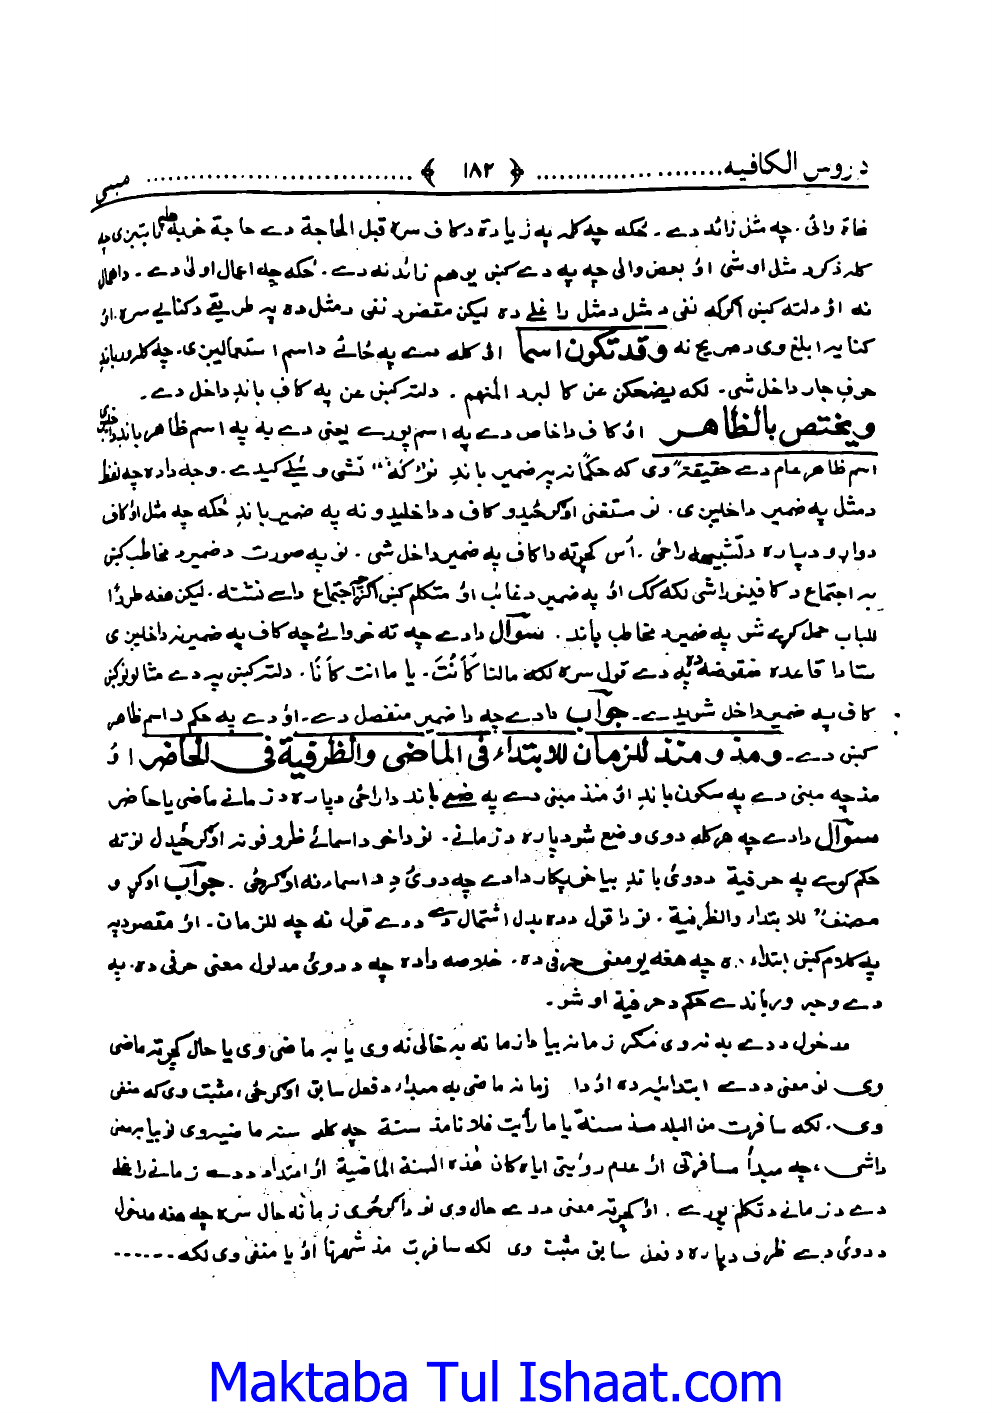 دروس الکافیه ........ ﴿ ۱۸۲ ﴾ ........ مبنی
وائی. چه مثل زائد دے۔ ځکه چه کله په زیادة د کاف سره قبل الحاجة دے
کله ذکر د مثل اوشی اؤ بعض وائی چه په دے کښی یو هم زائد نه دے. ځکه چه اعمال اولیٰ دے۔
نه اؤ دلته کښی اګرکه نفی د مثل د مثل راغلے ده لیکن مقصود نفی د مثل ده په طریقے د کنایے سره. اؤ
کنایه ابلغ وی د صریح نه وقد تکون اسما اؤ کله دے په ځائے د اسم استمالیږی. چه کله ورباندِ
حرف جار داخل شی۔ لکه یضحکن عن کا لبرد المنهم . دلته کښی عن په کاف باندِ داخل دے۔
ویختص بالظاهر اؤ کاف دا خاص دے په اسم پورے یعنی دے به په اسم ظاهر باندِ
اسم ظاهر عام دے حقیقةً وی که حکمًا نه په ضمیر باندِ نو "کهٗ" نشی وئیلے کیدے۔ وجه داده چه لفظ
د مثل په ضمیر داخلیږی. نو مستغنی اوګرځیدو کاف د داخلیدو نه په ضمیر باندِ ځکه چه مثل اؤ کاف
دواړه د پاره د تشبیه راځی. اُس کچرته دا کاف په ضمیر داخل شی. نو په صورت د ضمیر د مخاطب کښی
به اجتماع د کافینو راشی لکه کک اؤ په ضمیر د غائب اؤ متکلم کښی اګرچه اجتماع داسے نشته. لیکن هغه طردًا
للباب حمل کړے شو په ضمیر د مخاطب باندِ. سوال دا دے چه ته خو وائے چه کاف په ضمیر نه داخلیږی
ستا دا قاعده منقوضه ده په دے قول سره لکه ما انا کَاَنْتَ۔ یا ما انت کَاَنَا. دلته کښی په دے مثالونو کښی
کاف په ضمیر داخل شویدے۔ جواب دا دے چه دا ضمیر منفصل دے۔ اؤ دے په حکم د اسم ظاهر
کښی دے۔ ومذ ومنذ للزمان للابتداء فی الماضی والظرفیة فی الحاضر اؤ
مذ چه مبنی دے په سکون باندِ اؤ منذ مبنی دے په ضمے باندِ دا راځی د پاره د زمانے ماضی یا حاضر
سوال دا دے چه هرکله دوی وضع شو د پاره د زمانے. نو دا خو د اسمائے ظروفو نه اوګرځیدل نو ته
حکم کوے په حرفیة د دوئ باندِ بیا خو پکار دا دے چه دوئ دِ د اسماء نه اوګرځی. جواب اوکړو
مصنفؒ للابتداء والظرفیة. نو دا قول ده بدل اشتمال دے د دے قول نه چه للزمان. اؤ مقصود په
په کلام کښی ابتداء ده چه هغه یو معنی حرفی ده. خلاصه داده چه د دوئ مدلول معنی حرفی ده. په
دے وجه ورباندے حکم د حرفیة اوشو۔
مدخول د دے به نه وی مګر زمانه بیا دا زمانه به خالی نه وی یا به ماضی وی یا حال کچرته ماضی
وی نو معنی د دے ابتدائیه ده اؤ دا زمانه ماضی به مبداء د فعل سابق اوګرځی، مثبت وی که منفی
وی. لکه سافرت من البلد مذ سنة یا ما رأیت فلانا مذ سنة چه کله سنه ماضیه وی نو بیا به معنی
داشی، چه مبدأ مسافرتی اؤ عدم رؤیتی ایاه کان هٰذه السنة الماضیة اؤ امتداد د دے زمانے راغلے
دے د زمانے د تکلم پورے. اؤ کچرته معنی د دے حال وی نو دا ګرځوی زمانه حال سره چه هغه مدخول
د دوئ دے ظرف د پاره د فعل سابق مثبت وی لکه سافرت مذ شهرنا اؤ یا منفی وی لکه ------
Maktaba Tul Ishaat.com